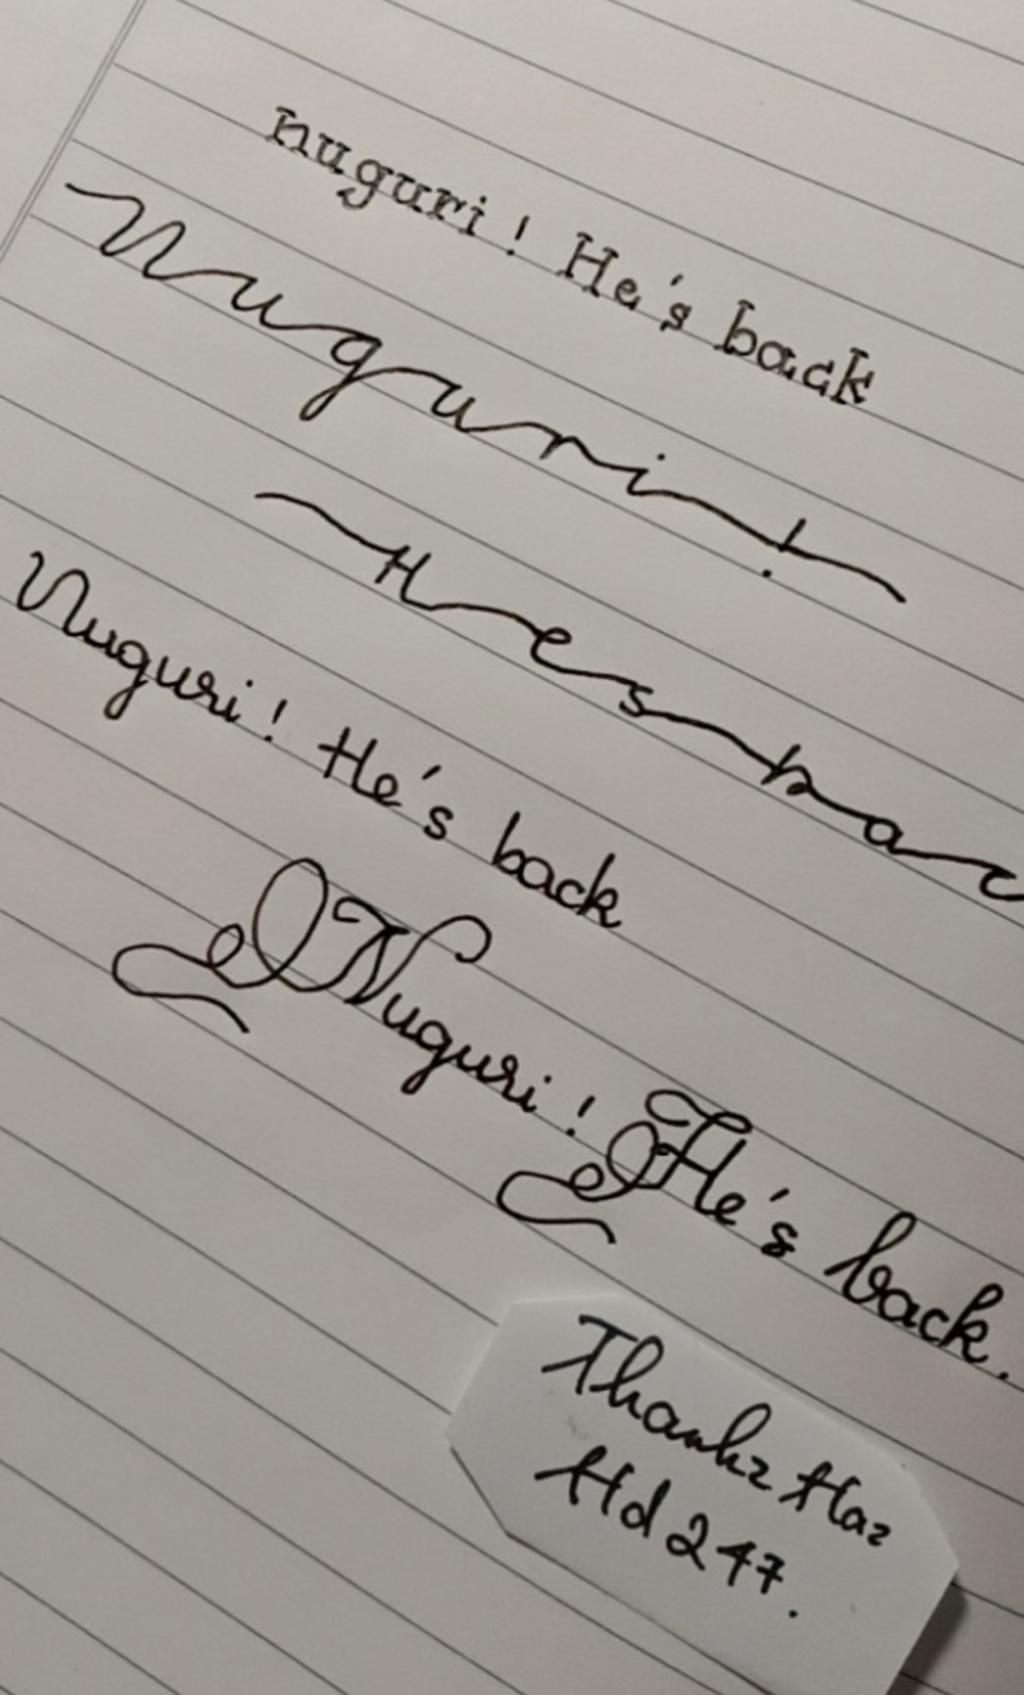 nuguri! He's back
Nuguri!
Hesbac
Nuguri! He's back
Nuguri! He's back.
Thankz Haz
Hd 247.